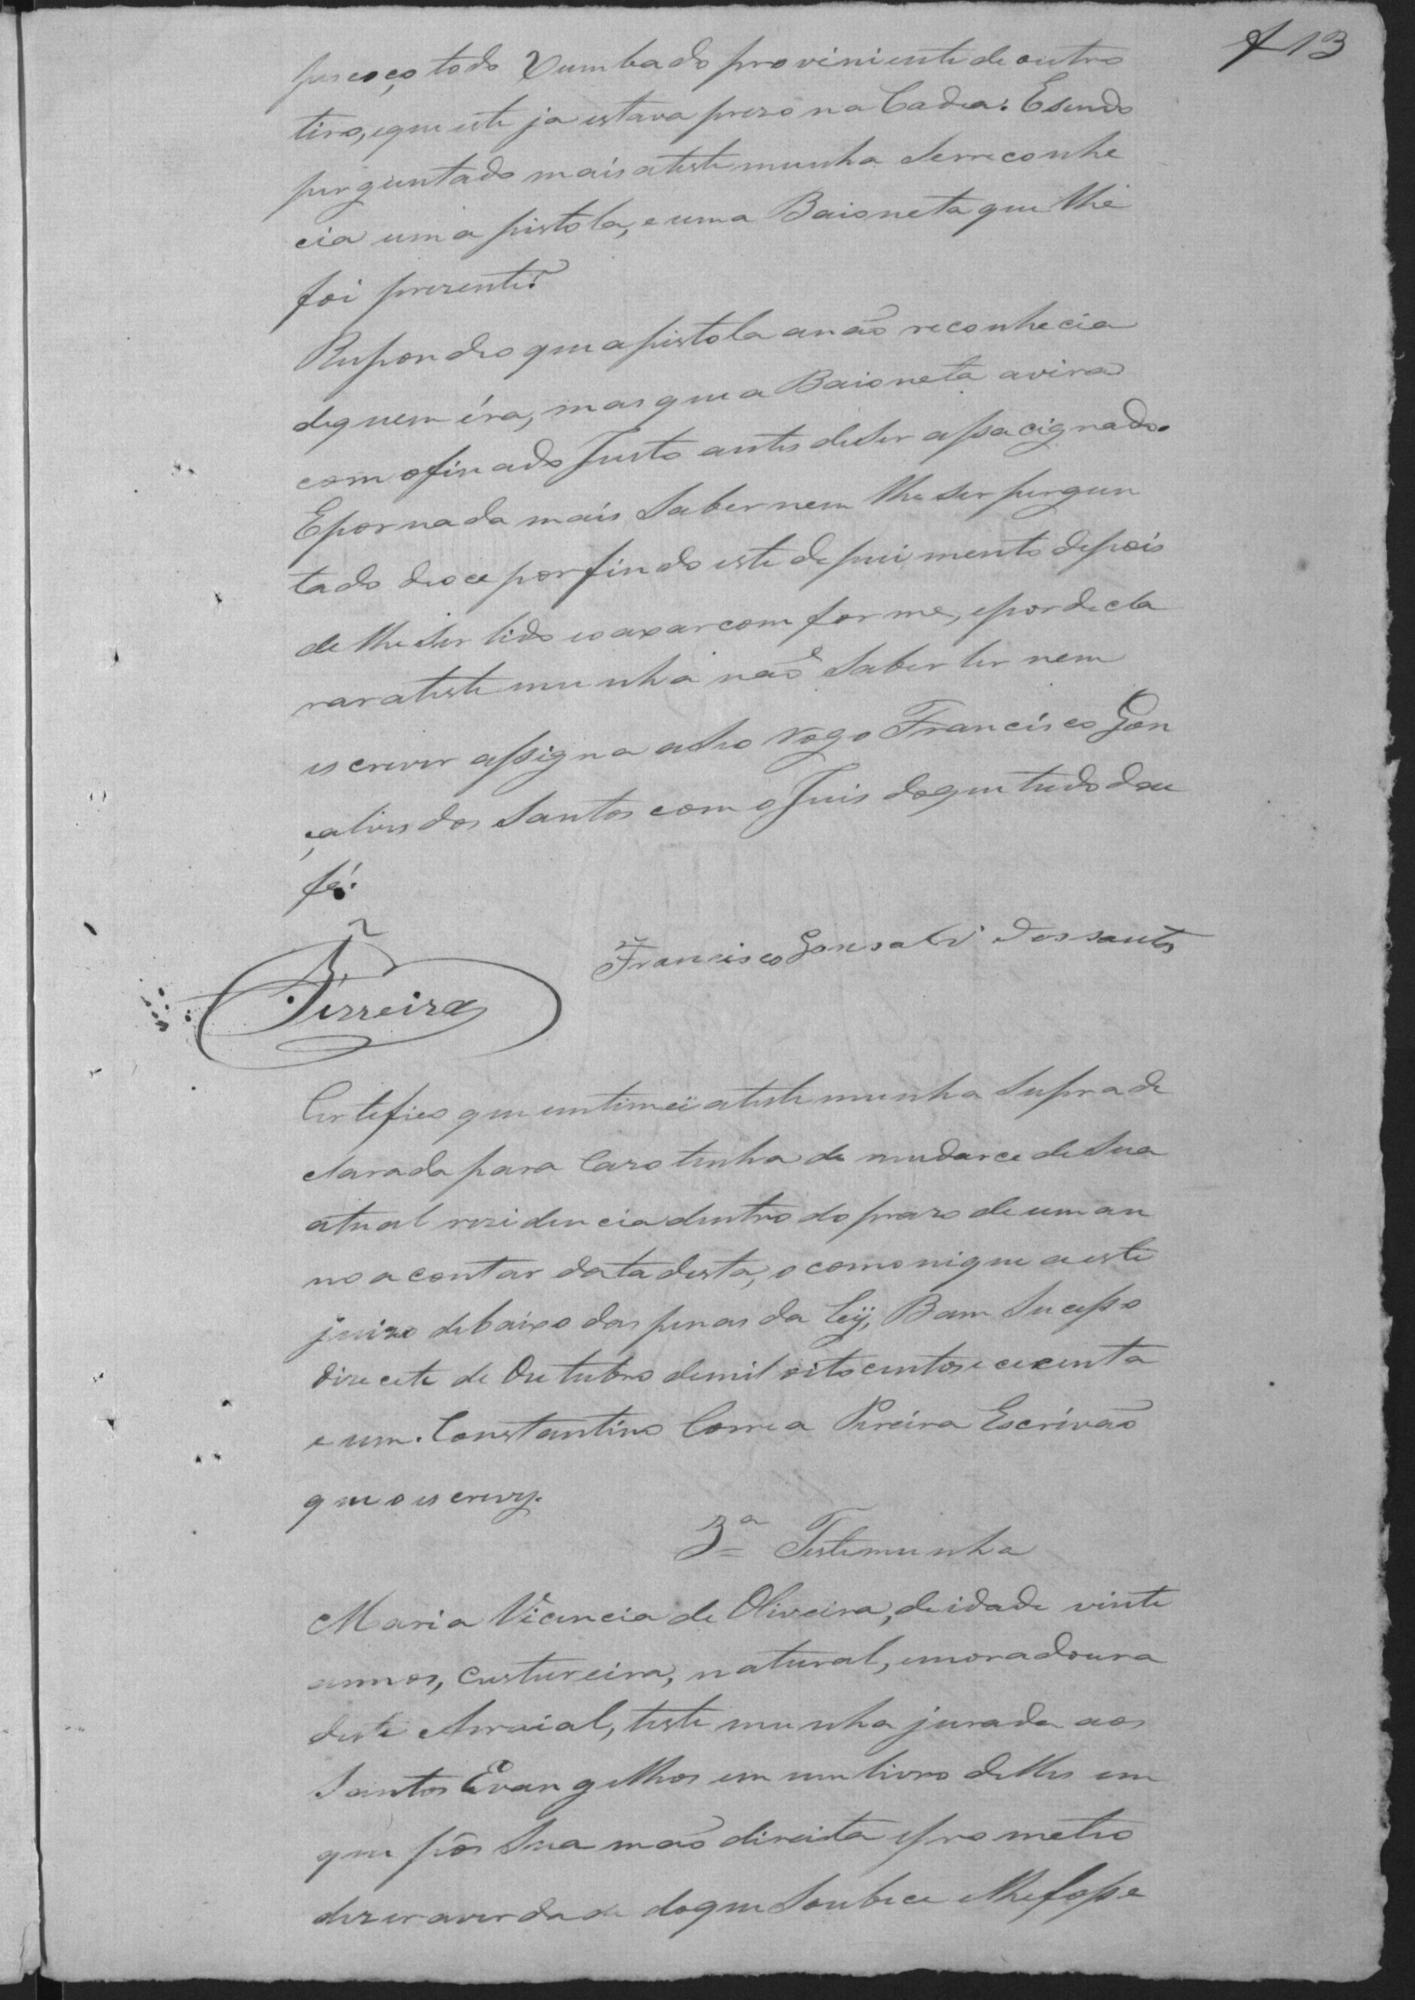 f 13
pescoço todo Xumbado proviniente de outro
tiro, eque este ja estava prezo na Cadea. Esendo
perguntado mais atestemunha Serreconhe
cia uma pistola, e uma Baioneta que lhe
foi prezente?
Respondeo que apistola anaõ reconhecia
dequem éra, mas que a Baioneta avira
com ofinado Justo antes deSer assacignado.
Epor nada mais Saber nem lhe Ser pergun
tado deoce por findo este depuimento depois
de lhe Ser lido eoaxar comforme, epor decla
rar atestemunha naõ Saber ler nem
escrever assigna aSeo rogo Francisco Gon
çalves dos Santos com o Juis doque tudo dou
fé.
Francisco Gonsalvˢ dos santos
Ferreira
Certefico que entimei atestemunha Suprade
clarada para Cazo tenha de mudarce de Sua
atual rezidencia dentro do prazo de um an
no a contar data desta, o comonique a este
juizo debaixo das penas da Leÿ, Bam Sucesso
dizecete de Outubro demil oitocentos e cecenta
e um. Constantino Correa Pereira Escrivaõ
que o escrevy.
3ª Testemunha
Maria Vicencia de Oliveira, de idade vinte
annos, Custureira, natural, emoradoura
deste Arraial, testemunha jurada aos
Santos Evangelhos em um livro delles em
que pôs Sua maõ direita eprometeo
dizer averdade doque Soubece elhe fosse